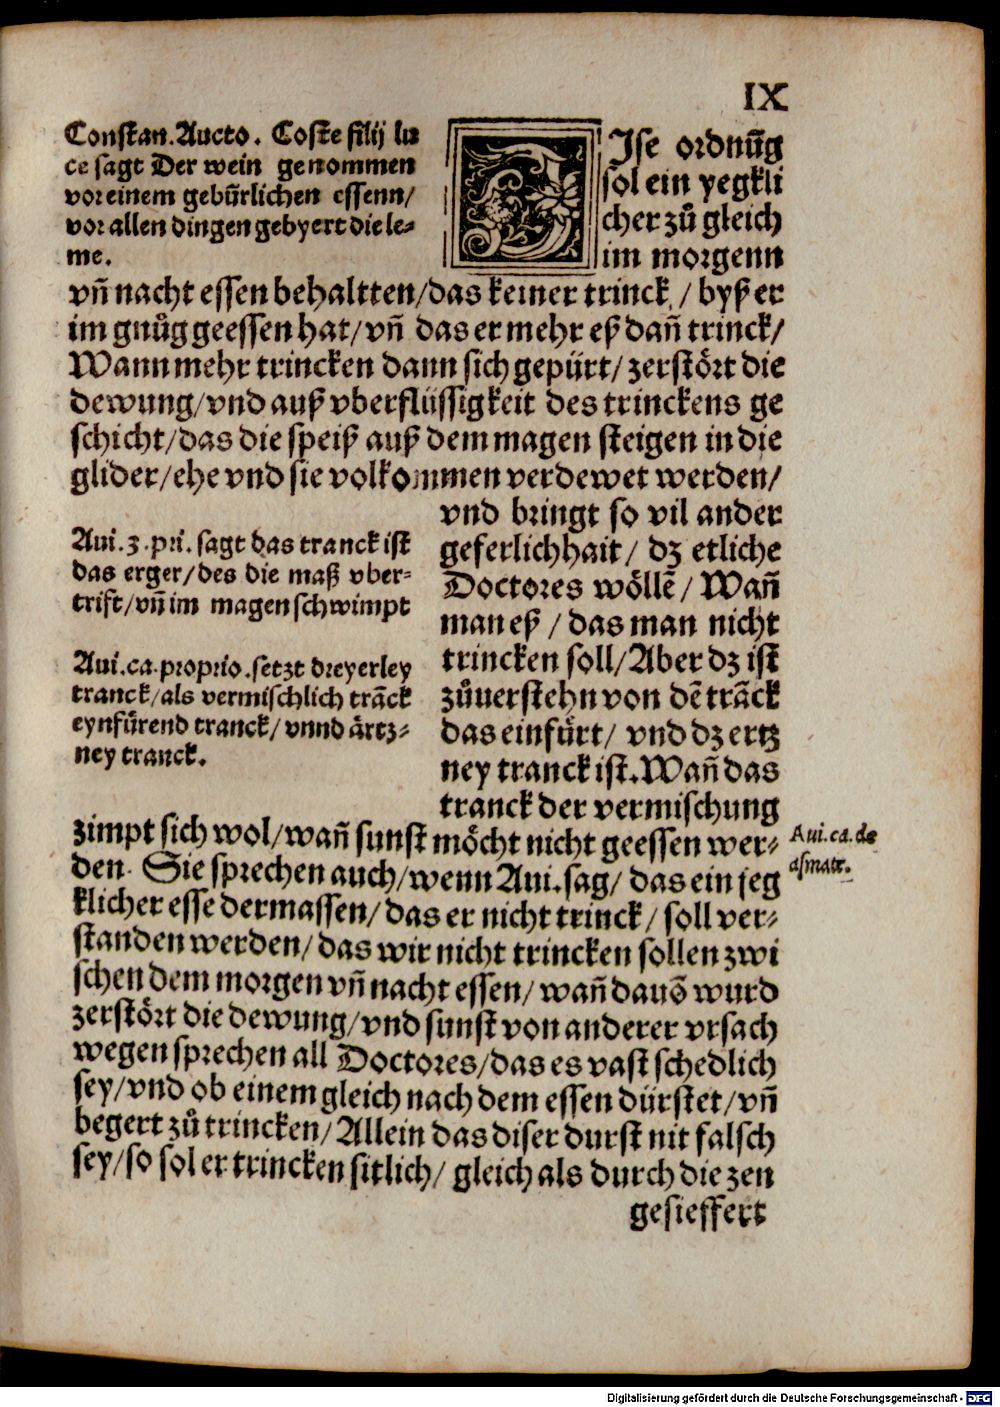 IX
Constan. Aucto. Coste filij lu
ce sagt Der wein genommen
vor einem gebürlichen essenn/
vor allen dingen gebyert die le-
me.
DIse ordnūg
sol ein yegkli
cher zů gleich
im morgenn
vñ nacht essen behaltten/das keiner trinck / byß er
im gnůg geessen hat/vñ das er mehr eß dañ trinck/
Wann mehr trincken dann sich gepürt/ zerstört die
dewung/vnd auß vberflüssigkeit des trinckens ge
schicht/das die speiß auß dem magen steigen in die
glider/ehe vnd sie volkommen verdewet werden/
vnd bringt so vil ander
geferlichhait/ dz etliche
Doctores wöllē/ Wañ
man eß / das man nicht
trincken soll/Aber dz ist
zůuerstehn von dē trāck
das einfürt/ vnd dz ertz
ney tranck ist. Wañ das
tranck der vermischung
Aui. 3. pri. sagt das tranck ist
das erger/des die maß vber-
trift/vñ im magen schwimpt
Aui. ca. proprio. setzt dreyerley
tranck/als vermischlich trāck
eynfürend tranck/ vnnd ärtz-
ney tranck.
zimpt sich wol/wañ sunst möcht nicht geessen wer-
den. Sie sprechen auch/wenn Aui. sag/ das ein jeg
klicher esse dermassen/das er nicht trinck/ soll ver-
standen werden/das wir nicht trincken sollen zwi
schen dem morgen vñ nacht essen/wañ dauō wurd
zerstört die dewung/vnd sunst von anderer vrsach
wegen sprechen all Doctores/das es vast schedlich
sey/vnd ob einem gleich nach dem essen dürstet/vñ
begert zů trincken/Allein das diser durst nit falsch
sey/so sol er trincken sitlich/ gleich als durch die zen
gesieffert
Aui. ca. de
asmatr.
Digitalisierung gefördert durch die Deutsche Forschungsgemeinschaft - DFG